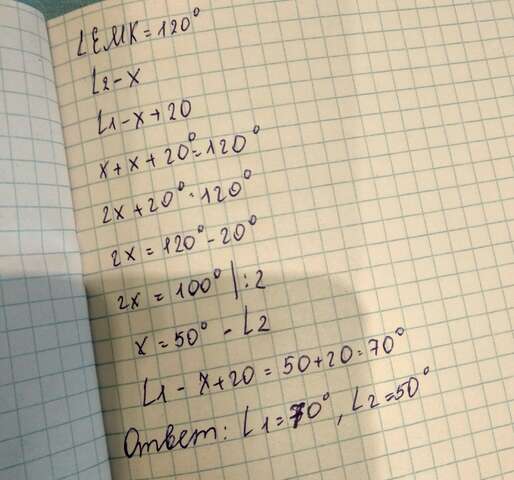 ∠EMK = 120°
∠2 - x
∠1 - x + 20
x + x + 20° = 120°
2x + 20° = 120°
2x = 120° - 20°
2x = 100° | : 2
x = 50° - ∠2
∠1 - x + 20 = 50 + 20 = 70°
Ответ: ∠1 = 70°, ∠2 = 50°